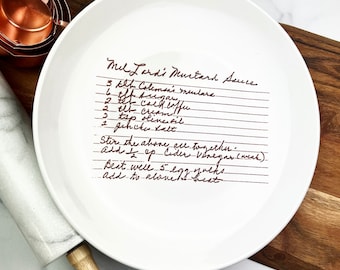 Mel Lord's Mustard Sauce
3 tbl Coleman's mustard
6 tbl sugar
2 tbl cold coffee
2 tbl cream
2 tsp olive oil
2 pinches salt
Stir the above all together.
Add ½ cp. Cider Vinegar (weak)
Beat well 5 egg yolks
add to above & heat